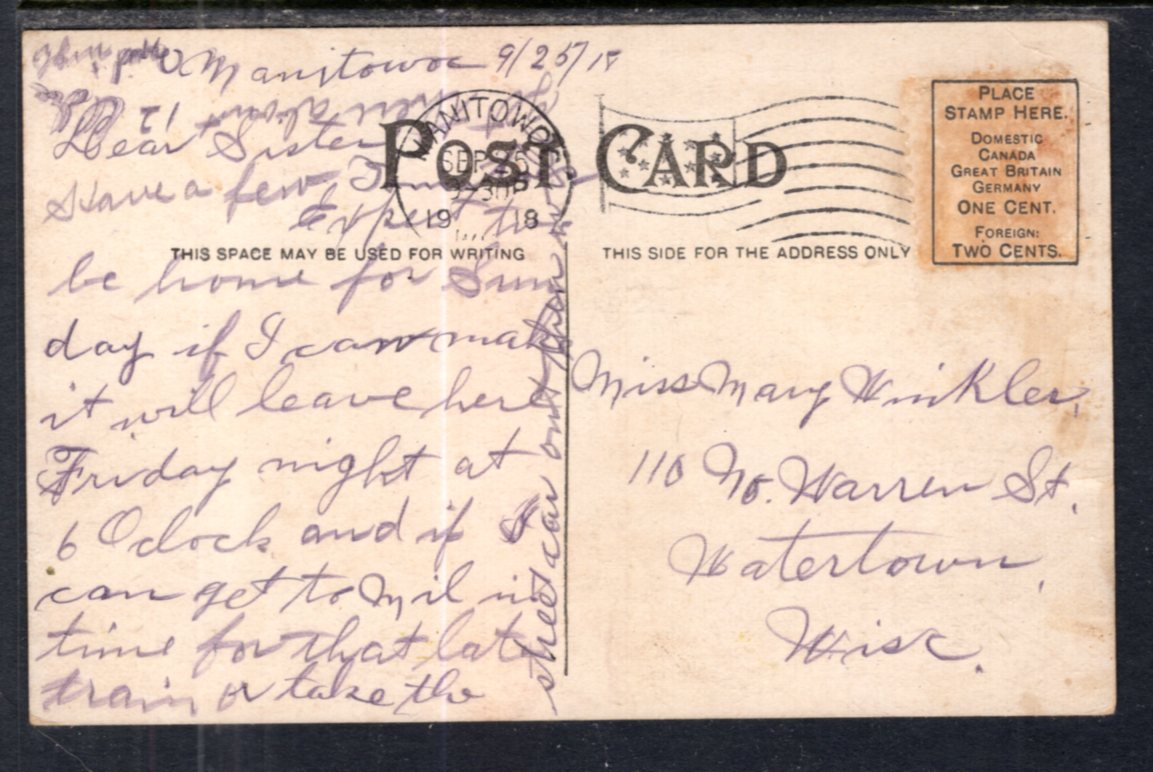 Manitowoc 9/25/18
Dear Sister
Have a few
Expect to
be home for Sun
day if I can make
it will leave here
Friday night at
6 Oclock and if I
can get to Mil in
time for that late
train or take the
street car out then
MANITOWOC
SEP 25
3-30P
1918
POST CARD
THIS SPACE MAY BE USED FOR WRITING
THIS SIDE FOR THE ADDRESS ONLY
PLACE
STAMP HERE.
DOMESTIC
CANADA
GREAT BRITAIN
GERMANY
ONE CENT.
FOREIGN:
TWO CENTS.
Miss Mary Winkler,
110 No. Warren St.,
Watertown,
Wisc.